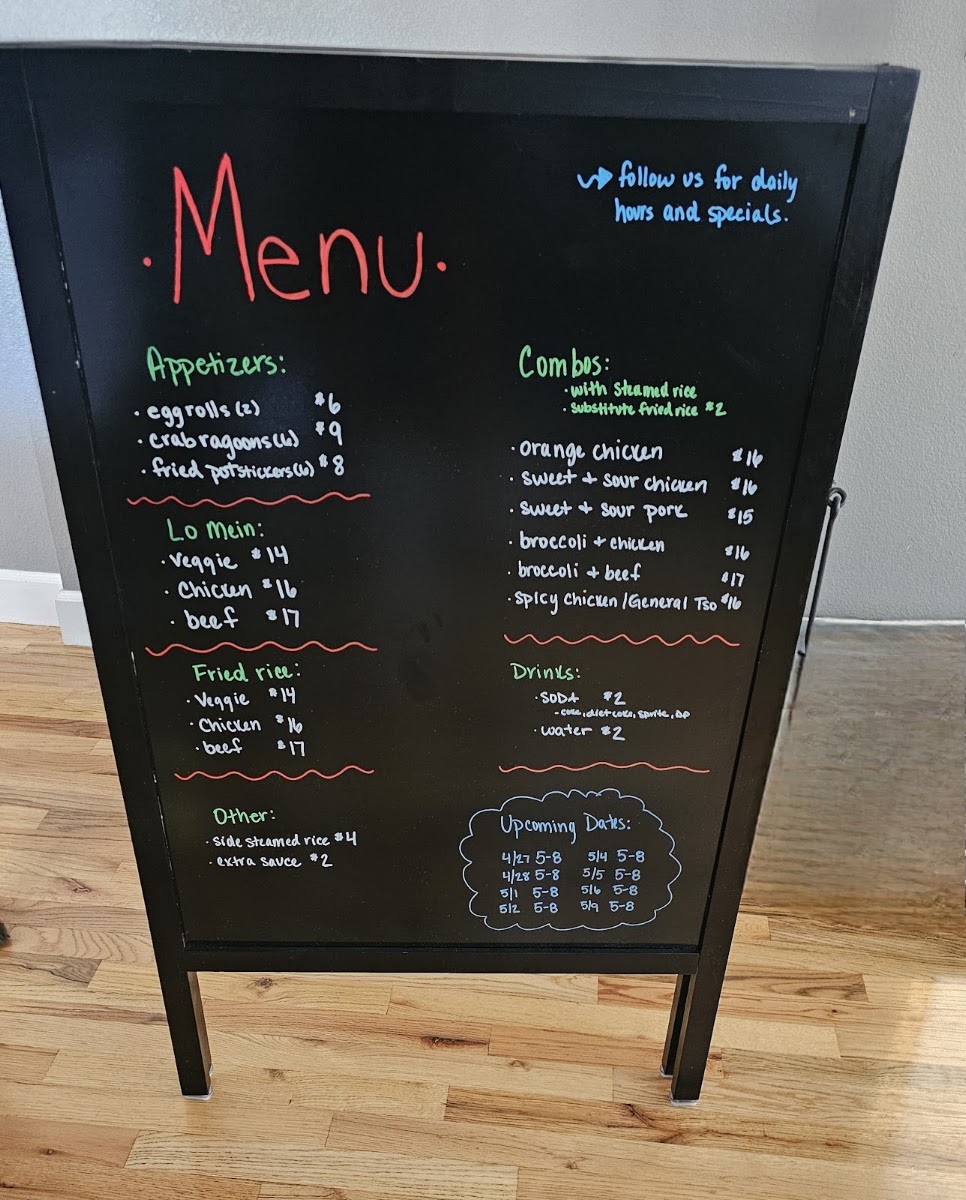 ·Menu·
follow us for daily
hours and specials.
Appetizers:
· eggrolls (2) $6
· crab ragoons (6) $9
· fried potstickers (6) $8
Lo Mein:
· Veggie $14
· Chicken $16
· beef $17
Fried rice:
· Veggie $14
· Chicken $16
· beef $17
Other:
· side steamed rice $4
· extra sauce $2
Combos:
· with steamed rice
· substitute fried rice $2
· orange chicken $16
· sweet + sour chicken $16
· sweet + sour pork $15
· broccoli + chicken $16
· broccoli + beef $17
· spicy chicken/General Tso $16
Drinks:
· SODA $2
- coke, diet coke, sprite, DP
· water $2
Upcoming Dates:
4/27 5-8 5/4 5-8
4/28 5-8 5/5 5-8
5/1 5-8 5/6 5-8
5/2 5-8 5/9 5-8